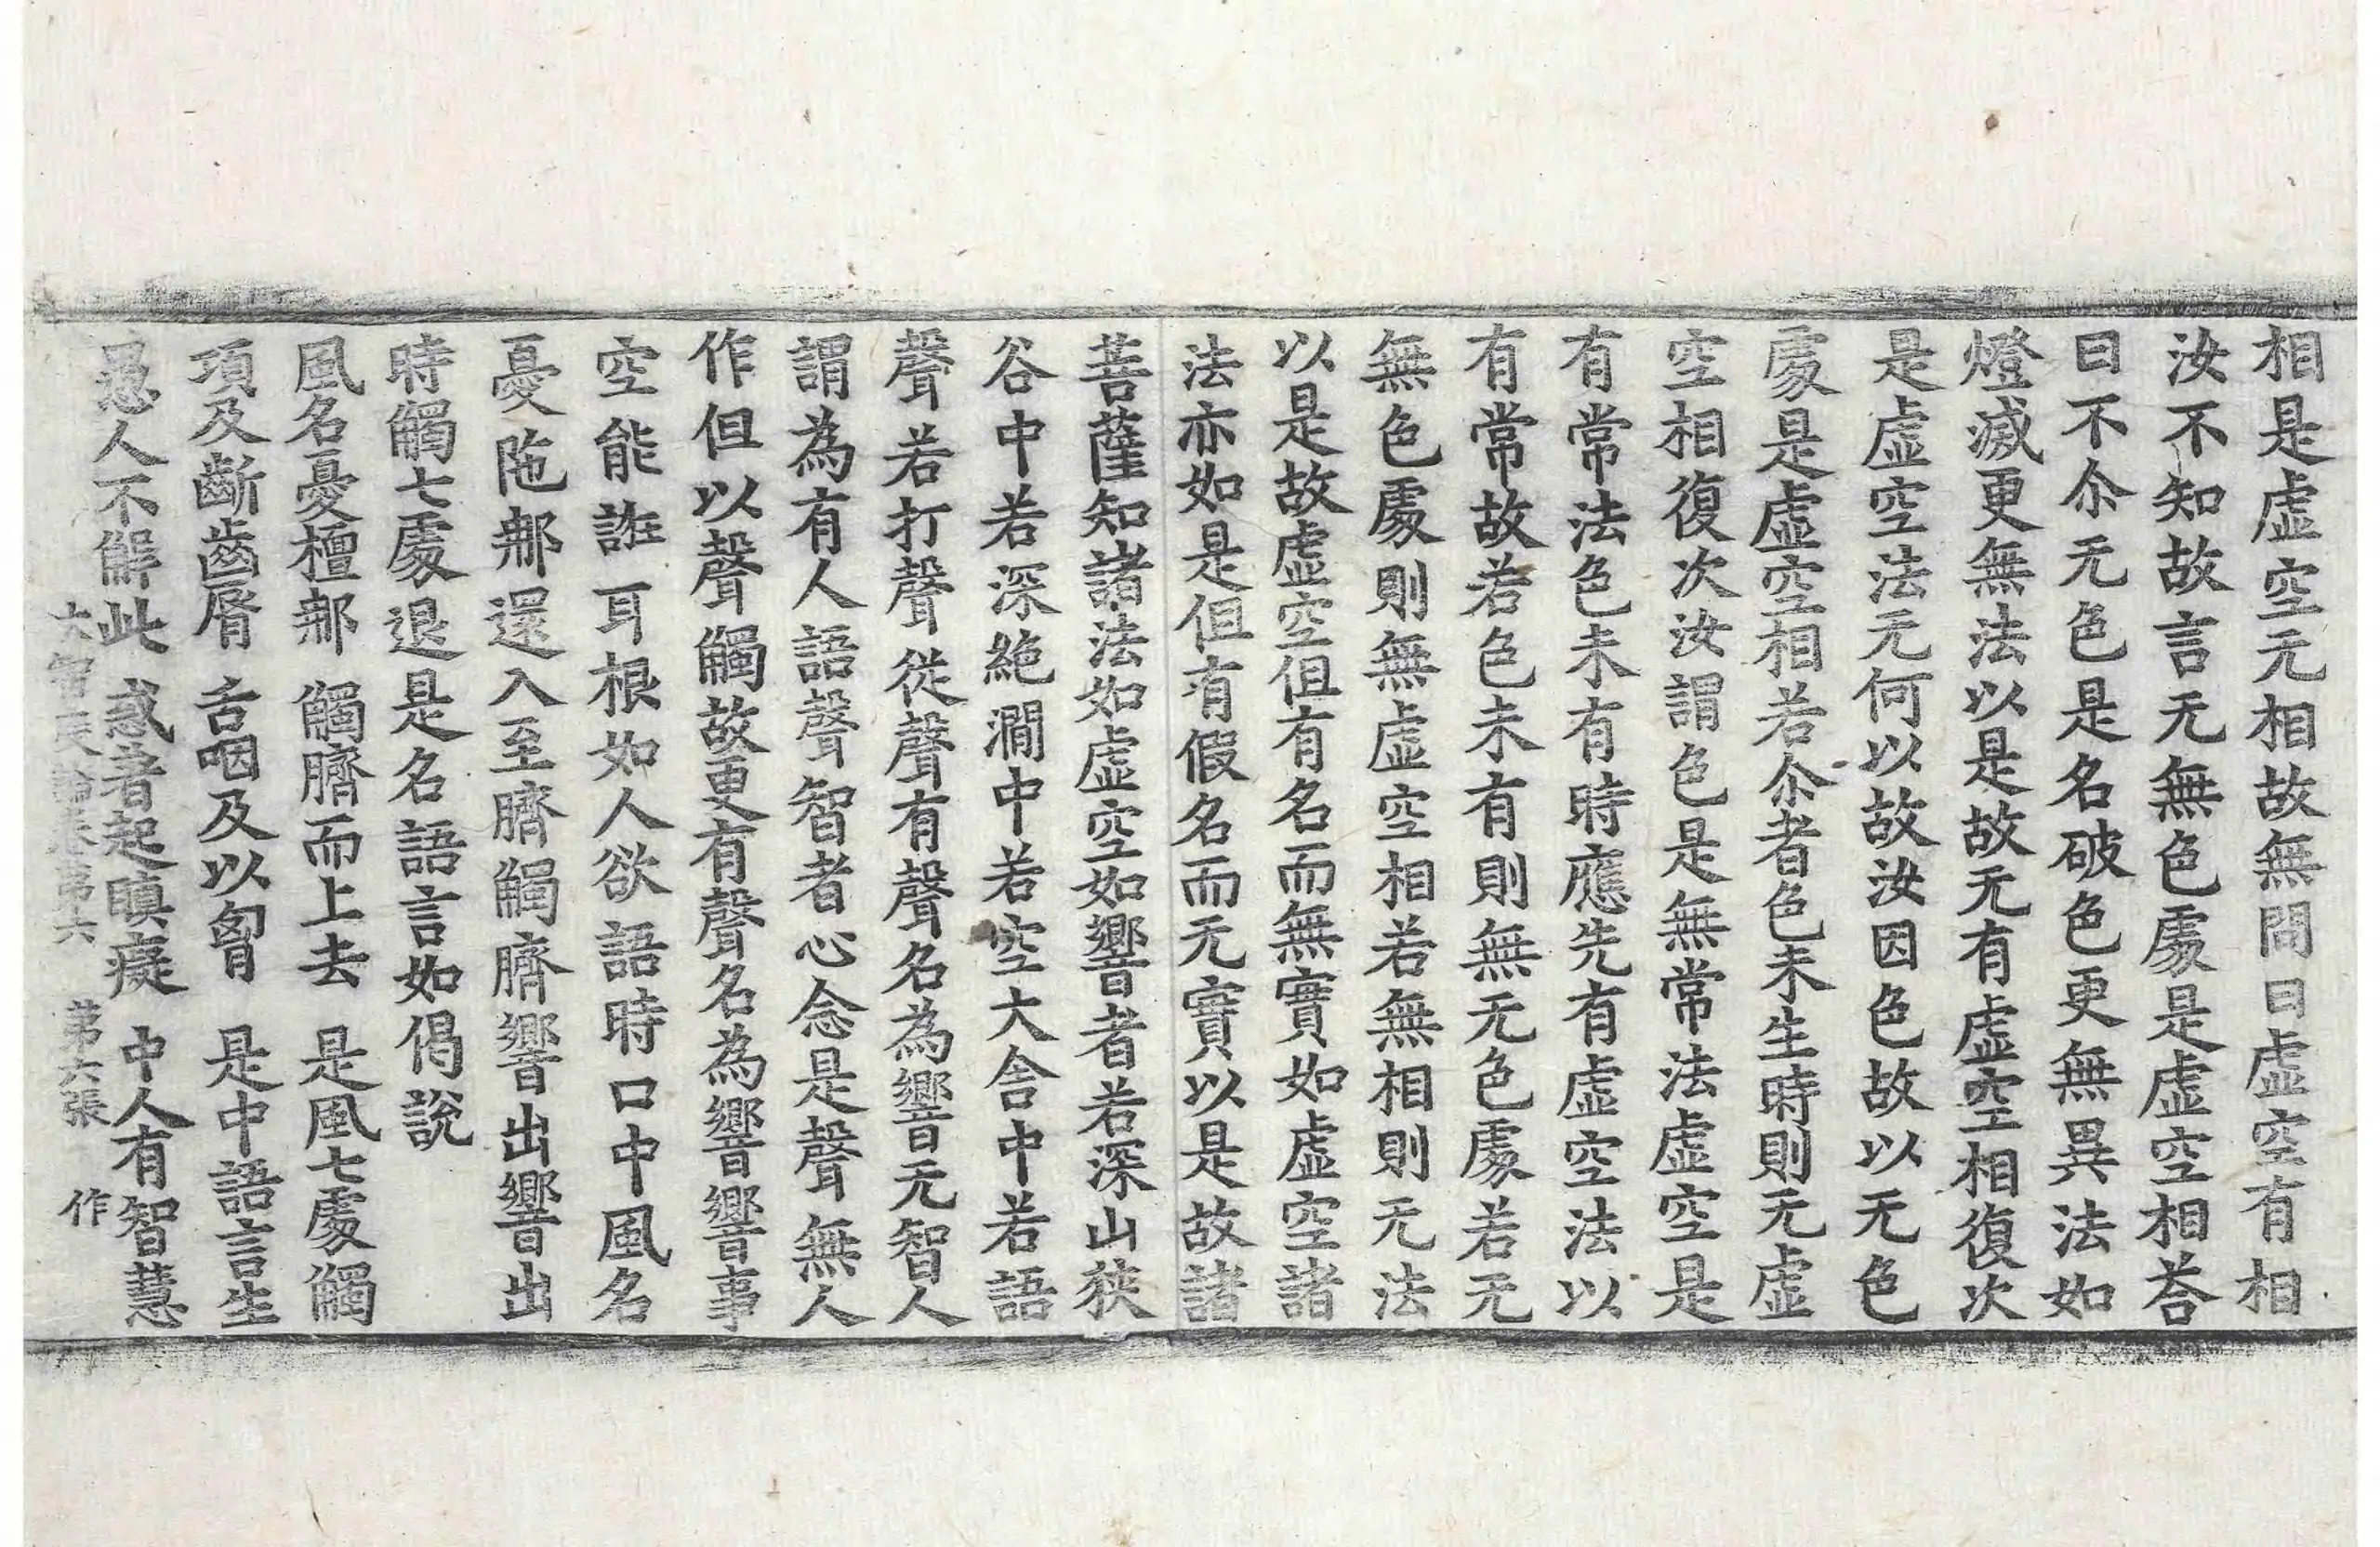 相是虛空无相故無問曰虛空有相
汝不知故言无無色處是虛空相荅
曰不尒无色是名破色更無異法如
燈滅更無法以是故无有虛空相復次
是虛空法无何以故汝因色故以无色
處是虛空相若尒者色未生時則无虛
空相復次汝謂色是無常法虛空是
有常法色未有時應先有虛空法以
有常故若色未有則無无色處若无
無色處則無虛空相若無相則无法
以是故虛空但有名而無實如虛空諸
法亦如是但有假名而无實以是故諸
菩薩知諸法如虛空如響者若深山狹
谷中若深絶澗中若空大舍中若語
聲若打聲從聲有聲名為響无智人
謂為有人語聲智者心念是聲無人
作但以聲觸故更有聲名為響響事
空能誑耳根如人欲語時口中風名
憂陁𨚗還入至臍觸臍響出響出
時觸七處退是名語言如偈說
風名憂檀𨚗　觸臍而上去　是風七處觸
項及齗齒脣　舌咽及以胷　是中語言生
愚人不解此　惑著起瞋癡　中人有智慧
大智度論卷第六　第六張　作